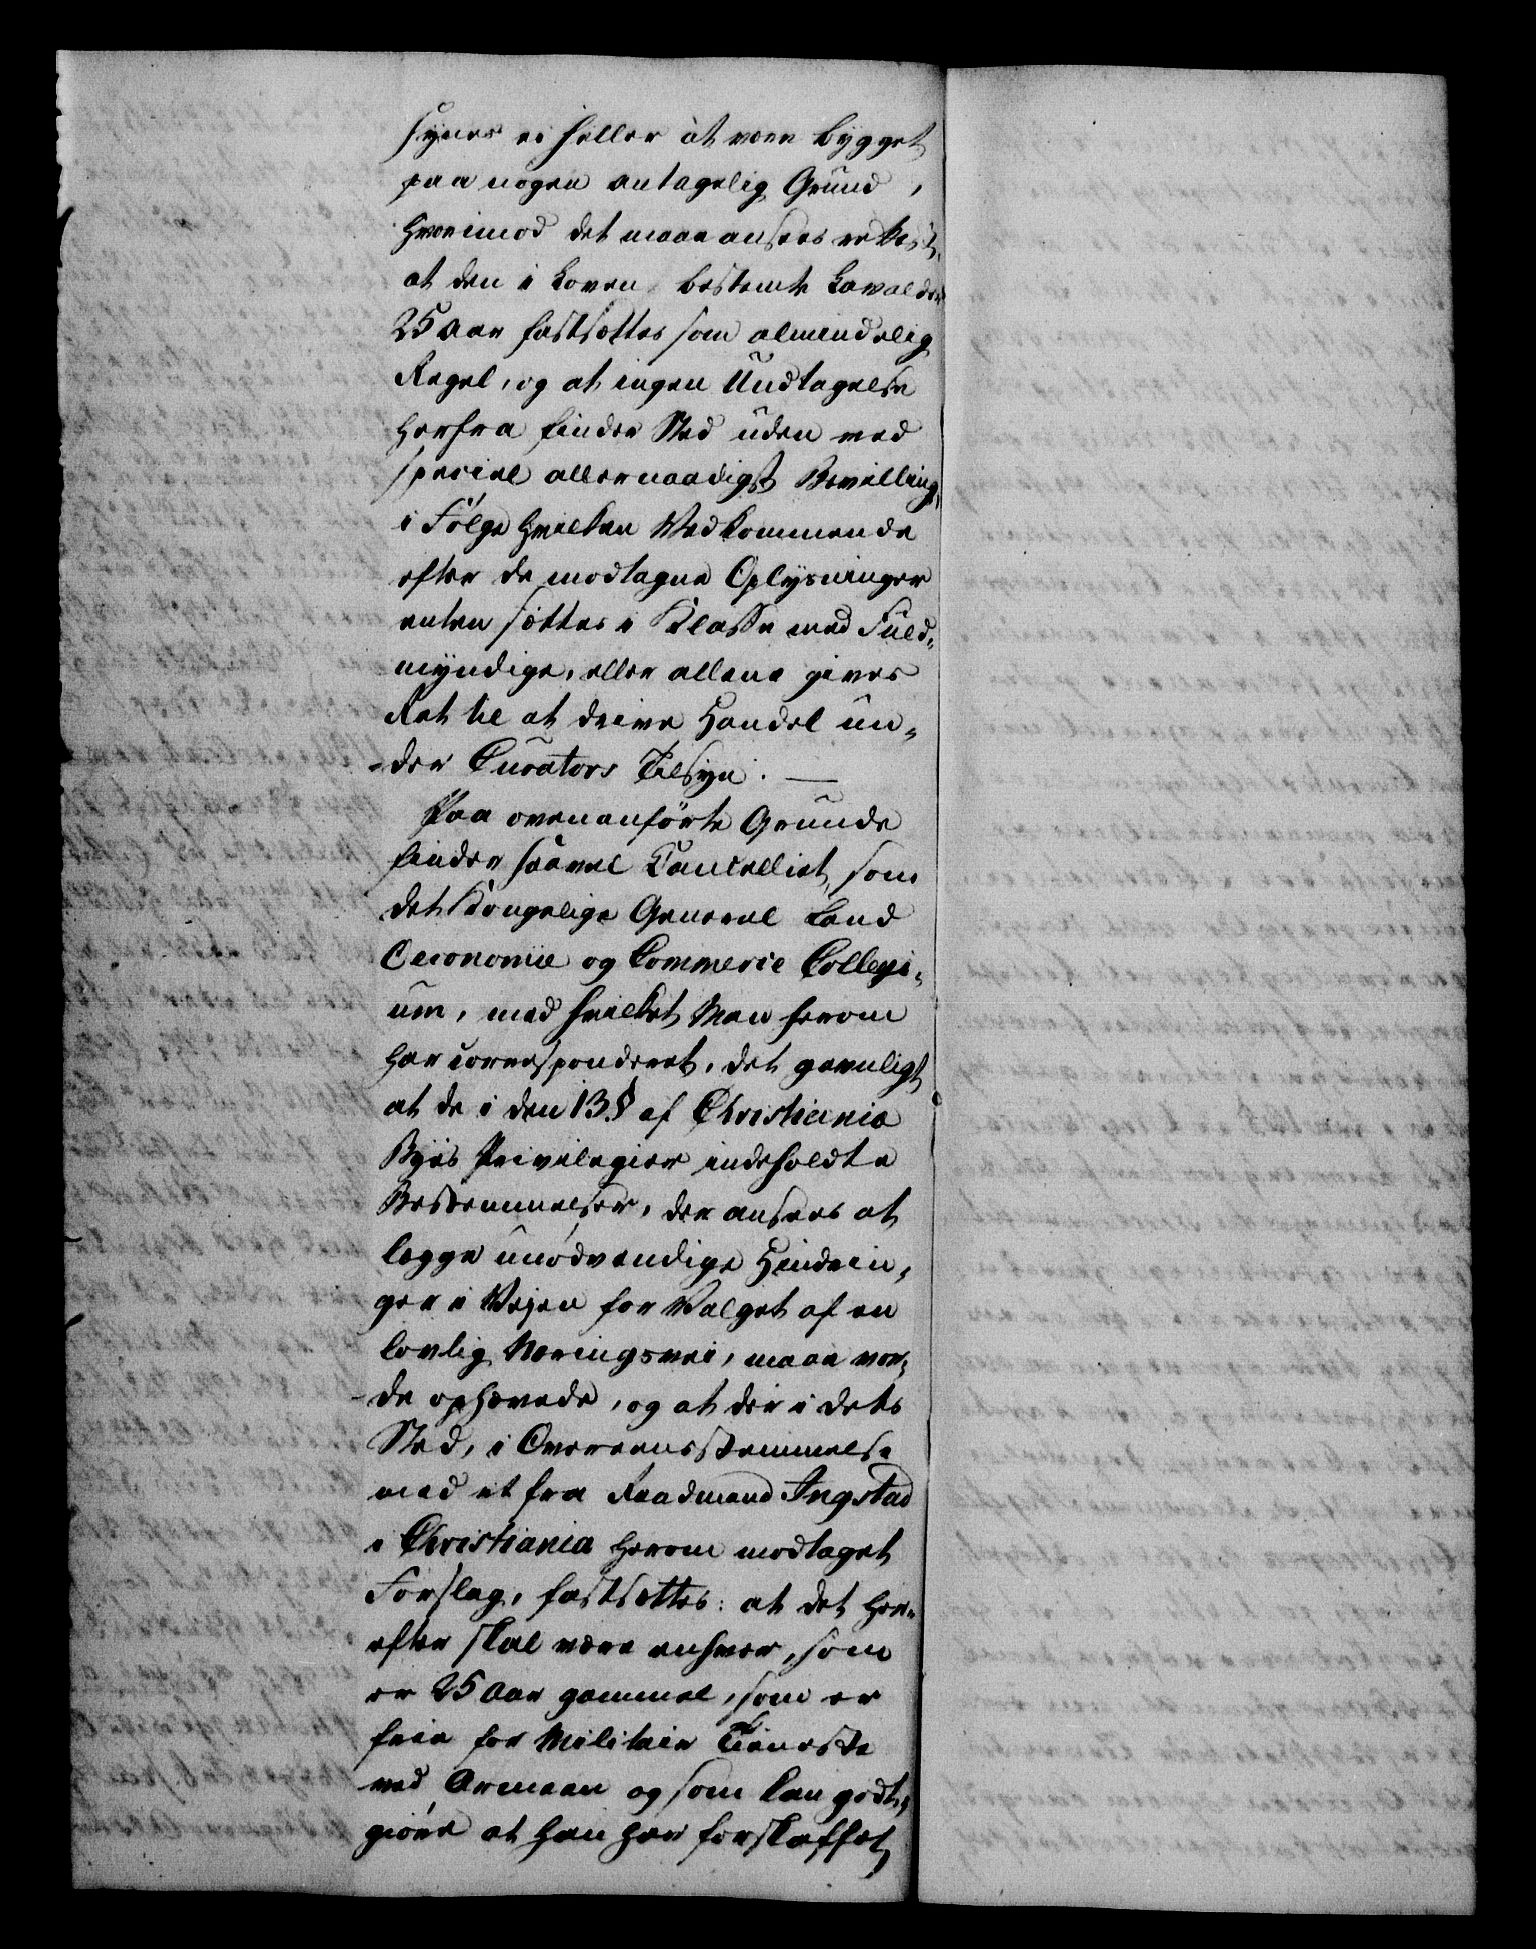 synes ei heller at være bygget
paa nogen antagelig Grund,
hvorimod det maae ansees rettest,
at den i Loven bestemte Lavalder
25 Aar fastsættes som almindelig
Regel, og at ingen Undtagelse
herfra finder Sted uden ved
speciel allernaadigst Bevilling,
i Følge hvilken Vedkommende
efter de modtagne Oplysninger
enten sættes i Klasse med Fuld-
myndige, eller allene gives
Ret til at drive Handel un-
der Curators Tilsyn. —
Paa ovenanførte Grunde
finder saavel Cancelliet, som
det Kongelige General Land
Oeconomie og Commerce Collegi-
um, med hvilket Man herom
har corresponderet, det gavnligt
at de i den 13 § af Christiania
Byes Privilegier indeholdte
Bestemmelser, der ansees at
legge unødvendige Hindrin-
ger i Vejen for Valget af en
lovlig Næringsvei, maae vor-
de ophævede, og at der i dets
Sted, i Overeensstemmelse
med et fra Raadmand Ingstad
i Christiania herom modtaget
Forslag, fastsættes: at det her-
efter skal være enhver, som
er 25 Aar gammel, som er
frie for Militair Tieneste
ved Armeen og som kan godt-
giøre at han har forskaffet